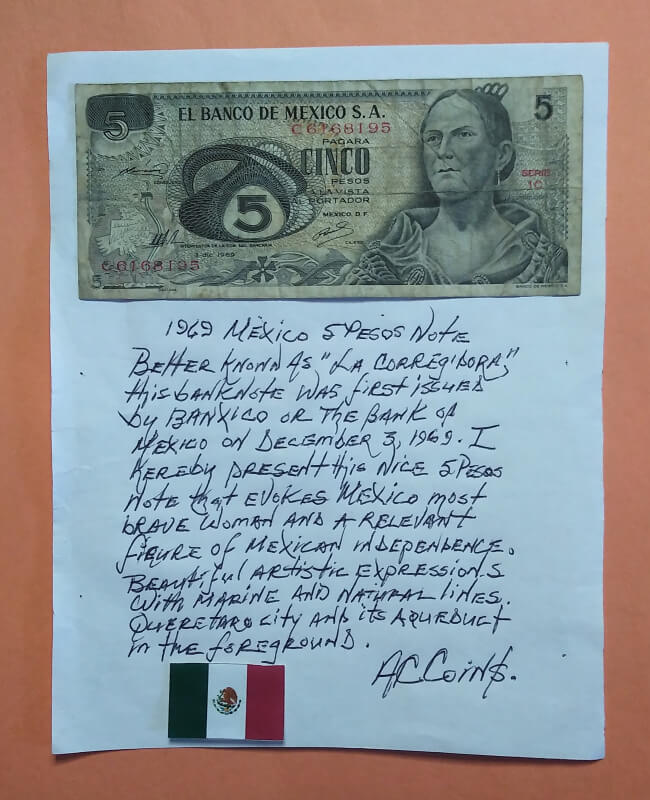 5
EL BANCO DE MEXICO S.A.
5
C6168195
PAGARA
CINCO
PESOS
A LA VISTA
AL PORTADOR
SERIE
1C
MEXICO, D.F.
5
CAJERO
3 dic 1969
C6168195
5
BANCO DE MEXICO S.A.
1969 MEXICO 5 PESOS NOTE
BETTER KNOWN AS, "LA CORREGIDORA,"
this BANKNOTE WAS first issued
by BANXICO OR THE BANK OF
MEXICO ON DECEMBER 3, 1969. I
HEREBY PRESENT this NICE 5 PESOS
NOTE that EVOKES MEXICO MOST
BRAVE WOMAN AND A RELEVANT
FIGURE OF MEXICAN INDEPENDENCE.
BEAUTIFUL ARTISTIC EXPRESSIONS
WITH MARINE AND NATURAL LINES.
QUERETARO CITY AND its AQUEDUCT
IN the FOREGROUND.
AC COIN$.